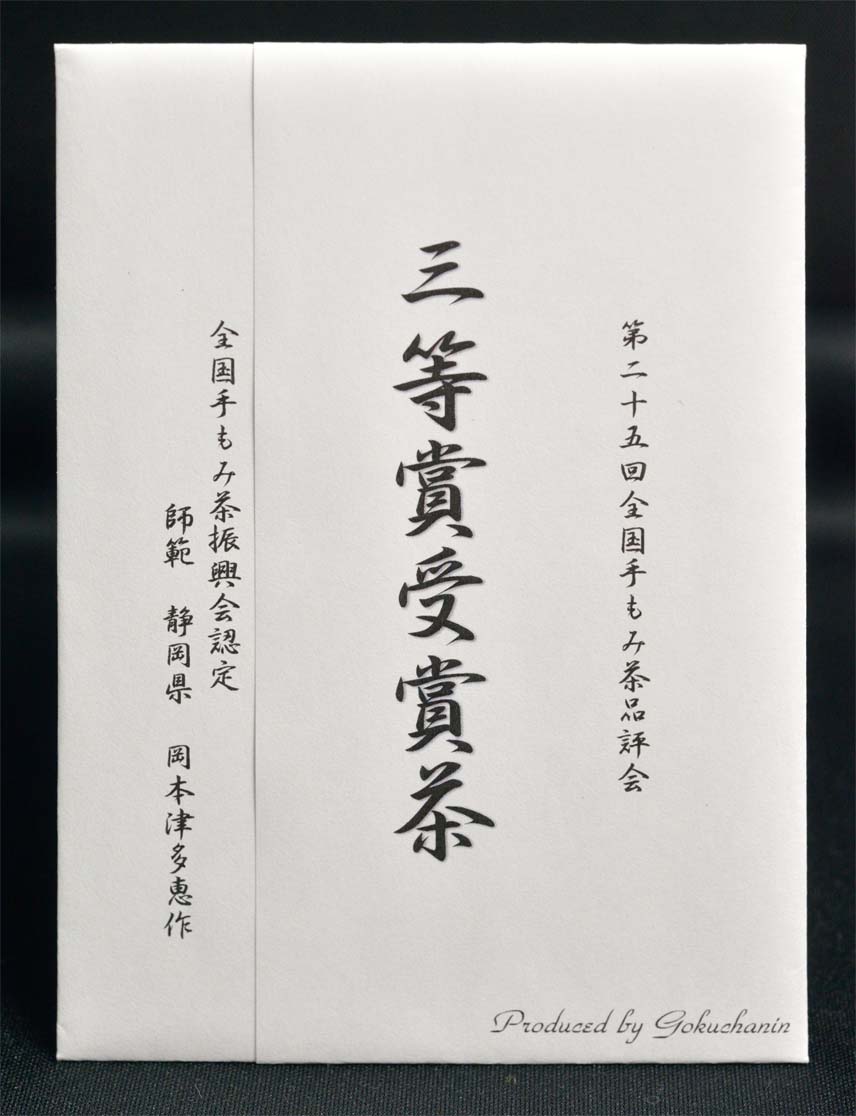 第二十五回全国手もみ茶品評会
三等賞受賞茶
全国手もみ茶振興会認定
師範 静岡県 岡本津多恵作
Produced by Gokuchanin